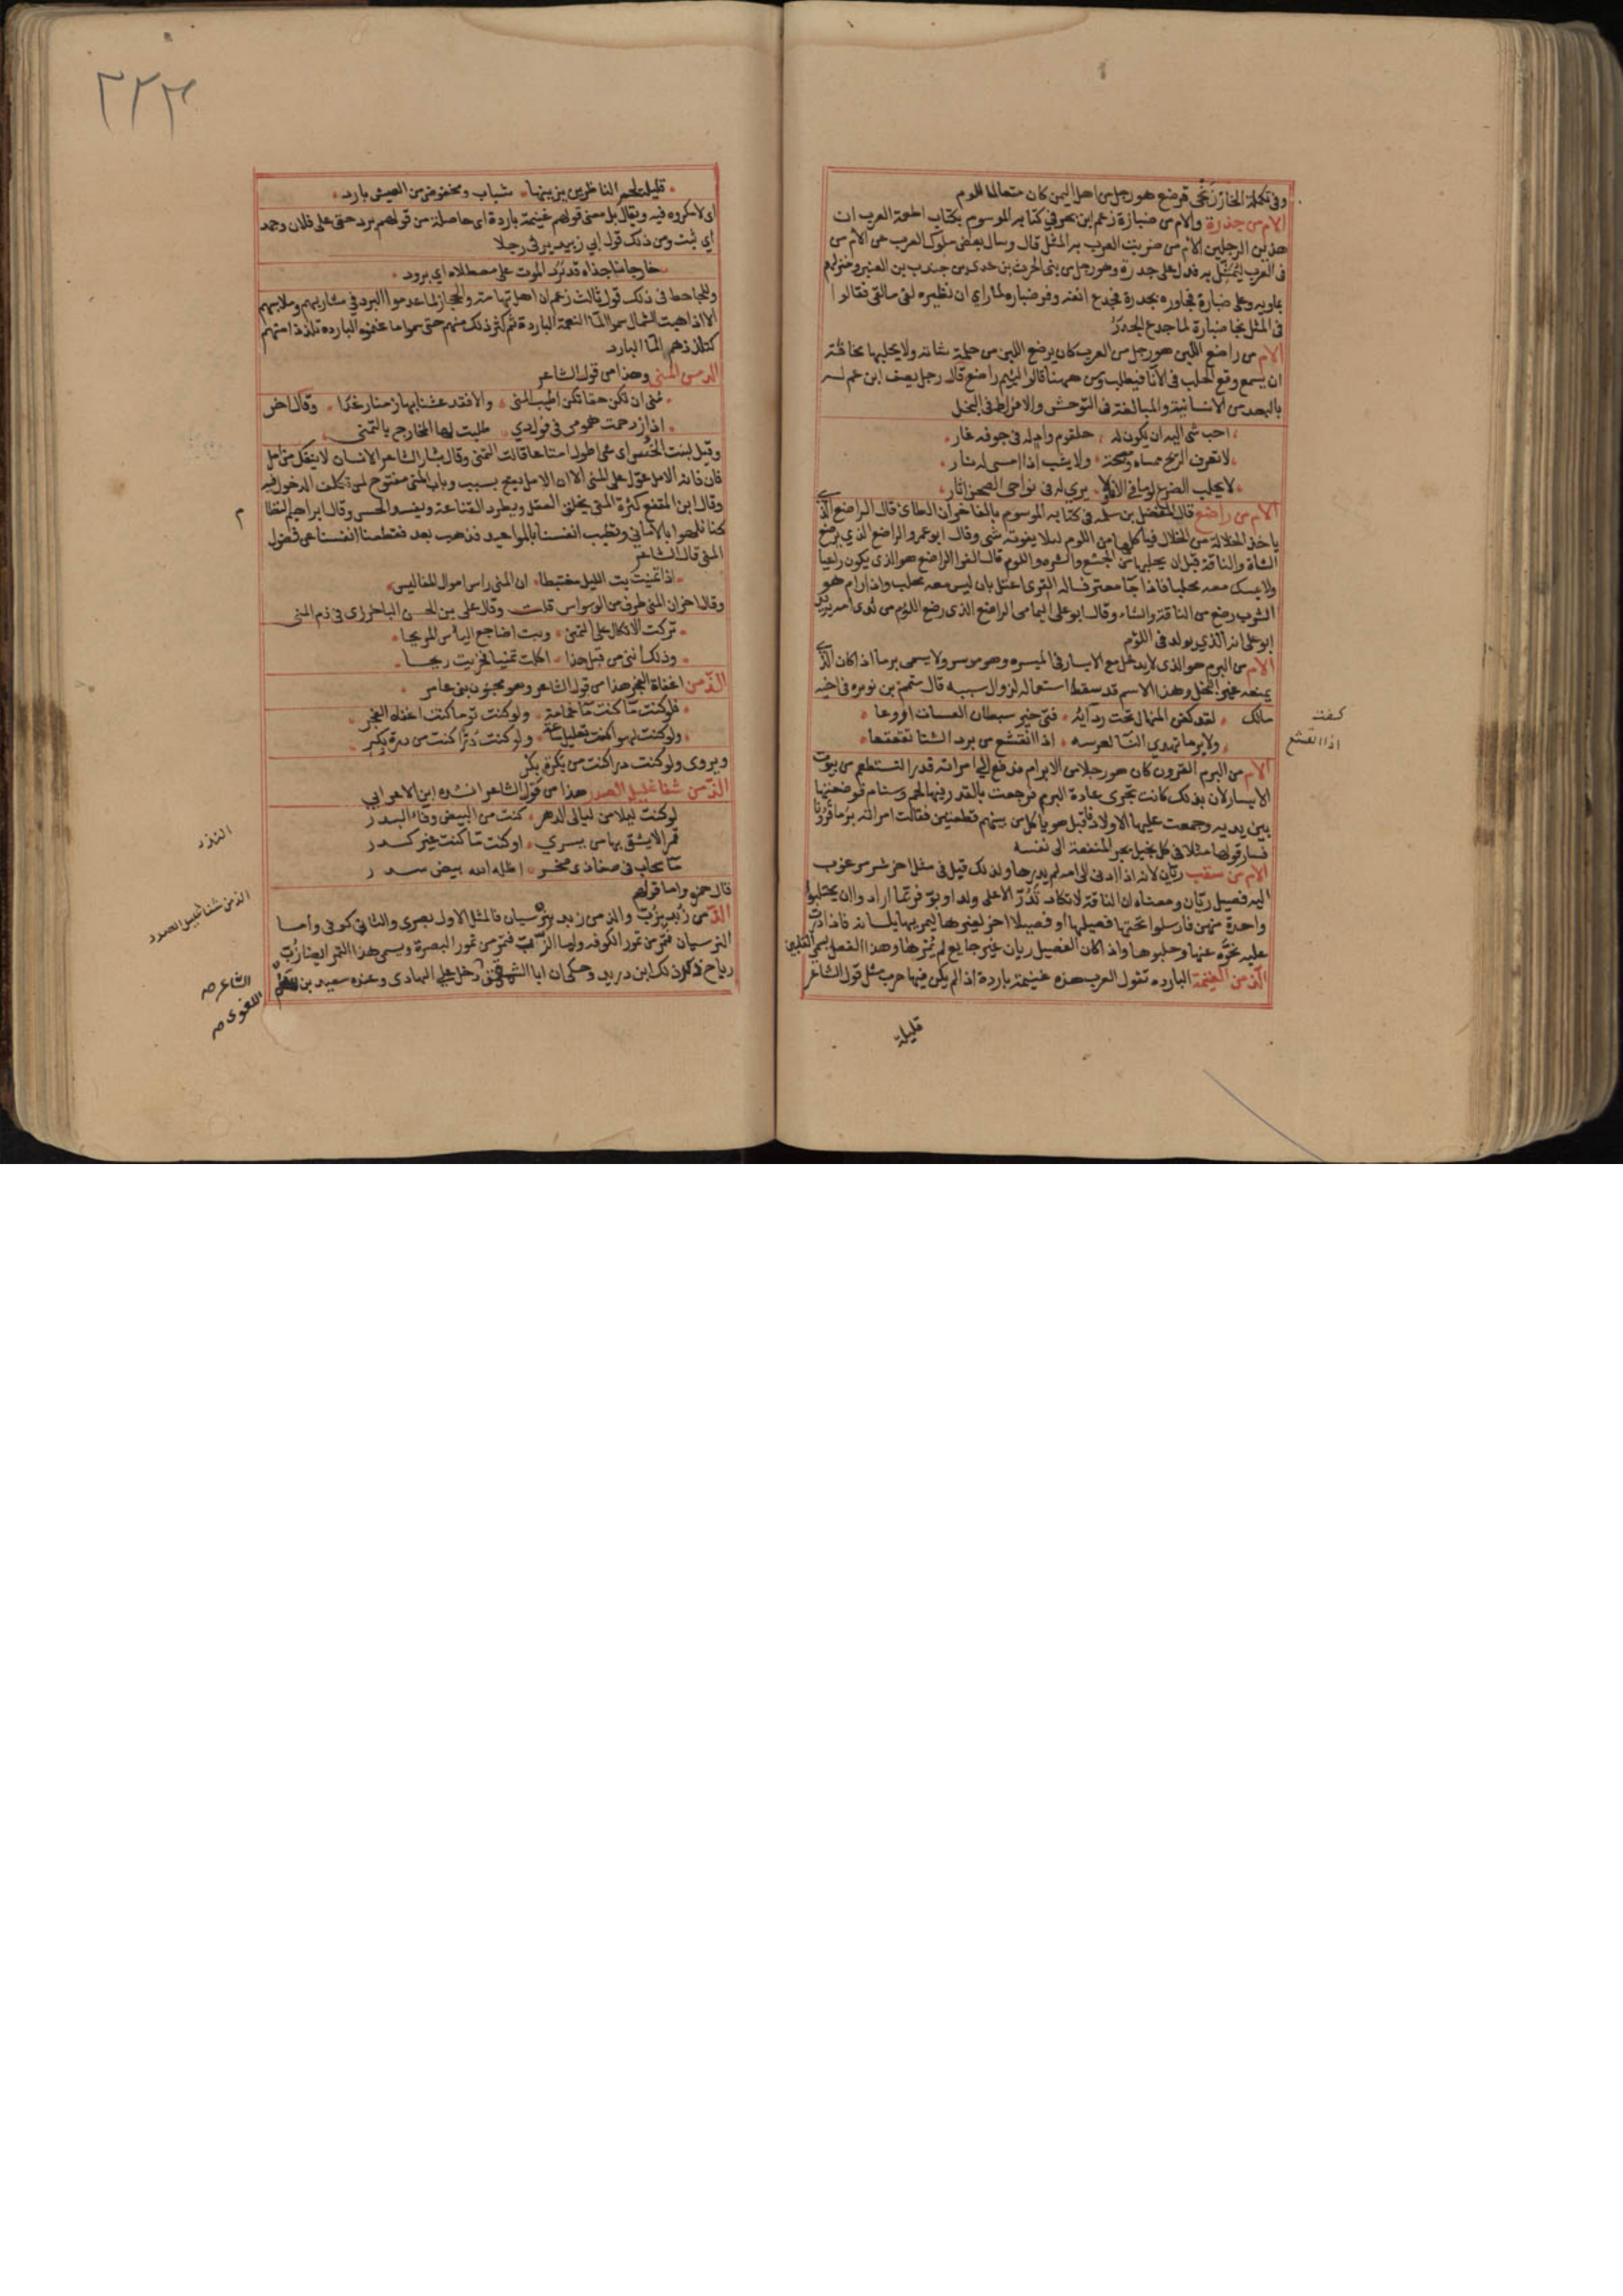 وفى تكملة الخارزنجى قرضع هو رجل من اهل اليمن كان متعالما للوم
الام من جذرة والام من ضبارة زعم ابن بحر فى كتابه الموسوم بكتاب اطعمة العرب ان
هذين الرجلين الأم من ضربت العرب به المثل قال وسال بعض ملوك العرب عن الأم من
فى العرب ليمثل به فدل على جدرة وهو رجل من بنى الحرث بن عدى بن جندب بن العنبر ومنزلهم
بماويه وعلى ضبارة فجاوره بجدرة فجدع انفه وفر ضباره لما راى ان نظيره لقى مالقى فقالوا
فى المثل نجا ضبارة لما جدع الجدرة
الام من راضع اللبن هو رجل من العرب كان يرضع اللبن من حلمة شاته ولا يحلبها مخافة
ان يسمع وقع الحلب فى الانا فيطلب ومن ههنا قالوا لئيم راضع قال رجل يصف ابن عم له
بالبعد من الانسانية والمبالغة فى التوحش والافراط فى البخل
احب شى اليه ان يكون له حلقوم واد له فى جوفه غار
لا تعرف الريح ممساه ومصبحه ولا يشب اذا امسى له نار
لا يحلب الضرع لوما فى الانا ولا يرى له فى نواحى الصحن اثار
الام من راضع قال المفضل بن سلمه فى كتابه الموسوم بالفاخر ان الطاى قال الراضع الذى
ياخذ الخلالة من الخلال فياكلها من اللوم ليلا يفوته شى وقال ابو عمرو الراضع الذي يرضع
الشاة والناقة قبل ان يحلبها من الجشع والشره واللوم قال الفرا الراضع هو الذى يكون راعيا
ولا يمسك معه محلبا فاذا جا معتر فساله القرى اعتل بان ليس معه محلب واذا رام هو
الشرب رضع من الناقة والشاء وقال ابو على اليمامى الراضع الذى رضع اللؤم من ثدى امه يريد
ابو على انه الذي يولد فى اللؤم
الام من البرم هو الذى لا يدخل مع الايسار فى الميسره وهو موسر ولا يسمى برما اذا كان الذى
يمنعه غير البخل وهذا الاسم قد سقط استعماله لزوال سببه قال متمم بن نويره فى اخيه
مالك لقد كفن المنهال تحت ردايه فتى غير مبطان العسيات اروعا
ولا برما تهدي النسا لعرسه اذا انقشع من برد الشتا تقعقعا
كفت
اذا القشع
الام من البرم القرون كان هو رجلا من الابرام فدفع الى امراته قدرا لتستطعم من بيوت
الايسار لان بذلك كانت تجرى عادة البرم فرجعت بالقدر فيها لحم وسنام فوضعتها
بين يديه وجمعت عليها الاولاد فاقبل هو ياكل من بينهم قطعتين فقالت امراته برما قرونا
فصار قولها مثلا فى كل بخيل يجر المنفعة الى نفسه
الام من سقب ريان لانه اذا ادنى الى امه لم يدرها ولذلك قيل فى مثل اخر شر مرغوب
اليه فصيل ريان ومعناه ان الناقة لا تكاد تدر الا على ولد او بو فربما اراد وا ان يحتلبوا
واحدة منهن فارسلوا تحتها فصيلها او فصيلا اخر لغيرها ليمريها بلسانه فاذا درت
عليه نحوه عنها وحلبوها واذا كان الفصيل ريان غير جايع لم يمرها وهذا الفعل يسمى التلبين
الذ من الغنيمة البارده تقول العرب هذه غنيمة باردة اذا لم يكن فيها حرب مثل قول الشاعر
قليلة
٢٢٣
قليلة لحم الناظرين يزينها شباب ومخفوض من العيش بارد
اى لا مكروه فيه ويقال بل معنى قولهم غنيمة باردة اى حاصلة من قولهم برد حقى على فلان وجمد
اي ثبت ومن ذلك قول ابي زبيد يرثى رجلا
خارجا ناجذاه قد برد الموت على مصطلاه اي برود
وللجاحظ فى ذلك قول ثالث زعم ان اهل تهامة والحجاز لما عدموا البرد في مشاربهم وملابسهم
الا اذا هبت الشمال سموا الما النعمة الباردة ثم كثر ذلك منهم حتى سموا ما غنموه البارده تلذذا منهم
كتلذذهم الما البارد
الذ من المنى وهذا من قول الشاعر
منى ان تكن حقا تكن اطيب المنى والا فقد عشنا بها زمنا رغدا وقال اخر
اذا ازدحمت همومى فى فوادي طلبت لها المخارج بالتمنى
وقيل لبنت الخس اى شى اطول امتاعا قالت التمنى وقال بشار الشاعر الانسان لا ينفك من امل
فان فاته الامل عول على المنى الا ان الامل يقع بسبب وباب المنى مفتوح لمن تكلف الدخول فيه
وقال ابن المقفع كثرة المنى يخلق العقل ويطرد القناعة ويفسد الحس وقال ابراهيم النظام
كنا نلهوا بالامانى ونطيب انفسنا بالمواعيد فذهب بعد فقطعنا انفسنا عن فضول
المنى قال الشاعر
اذا تمنيت بت الليل مغتبطا ان المنى راس اموال المفاليس
وقال اخر ان المنى طرف من الوسواس قلت وقال على بن الحسن الباخرزى فى ذم المنى
تركت الاتكال على التمنى وبت اضاجع الياس المريحا
وذلك انني من قبل هذا اكلت تمنيا فخريت ريحا
الذ من اغفاة الفجر هذا من قول الشاعر وهو مجنون بنى عامر
فلو كنت ما كنت ما غمامة ولو كنت نوما كنت اغفاه الفجر
ولو كنت لهوا كنت تعليل ساعة ولو كنت درا كنت من درة بكر
ويروى ولو كنت درا كنت من بكرة بكر
الذ من شفا غليل الصدر هذا من قول الشاعر انشده ابن الاعرابي
لو كنت ليلا من ليالى الدهر كنت من البيض وفاء البدر
قمرا لا يشقى بها من يسري او كنت ما كنت غير كدر
ما سحاب فى صفا ذى صخر اظله الله بيض سدر
قال حمزه واما قولهم
الذ من زبد بزب والذ من زبد بنرسيان فالمثل الاول بصرى والثانى كوفى وأما
النرسيان فتمر من تمور الكوفه واما الزب فتمر من تمور البصرة ويسمى هذا التمر ايضا زب
رباح ذكر ذلك ابن دريد وحكى ان ابا الشمقمق دخل على الهادى وعنده سعيد بن سلم
الذ من شفا غليل الصدر
الشاعر صح
اللغوى صح